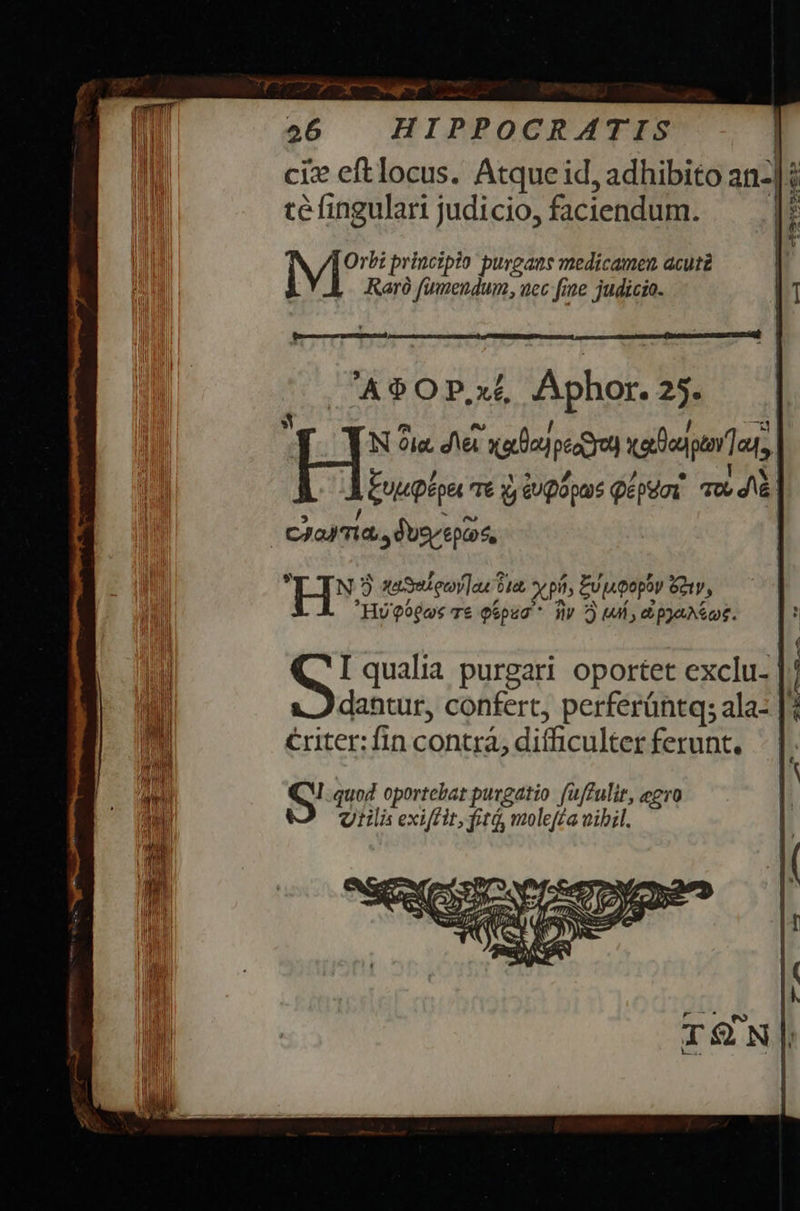 26 HIPPOCRATIS
ciæ eſt locus. Atque id, adhibito an-
tè ſingulari judicio, faciendum.
MOrbi principio purgans medicamen acutè
Rarò ſumendum, nec ſine judicio.
ἈΦΟΡ. κέ, Aphor. 25.
Ἢν οἷα δεῖ καθαίρεσθαι καθαίρωνται,
ξυμφέρει τε καὶ εὐφόρως φέρουσι· τὰ δὲ
ἐναντία, δυσχερῶς.
Ἢν δὲ καθαίρωνται οἷα χρή, ξύμφορόν ἐστιν,
Ἠΰφόρως τε φέρουσ᾽· ἢν δὲ μή, ἀργαλέως.
SI qualia purgari oportet exclu-
dantur, confert, perferúntq; ala-
criter: ſin contrá, difficulter ferunt.
SI quod oportebat purgatio ſuſtulit, ægro
Utilis exiſtit, fitq́, moleſta nihil.
ΤΩ͂Ν